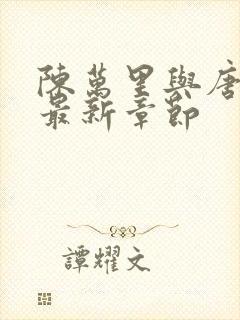 陳萬里與唐
最新章節
譚耀文